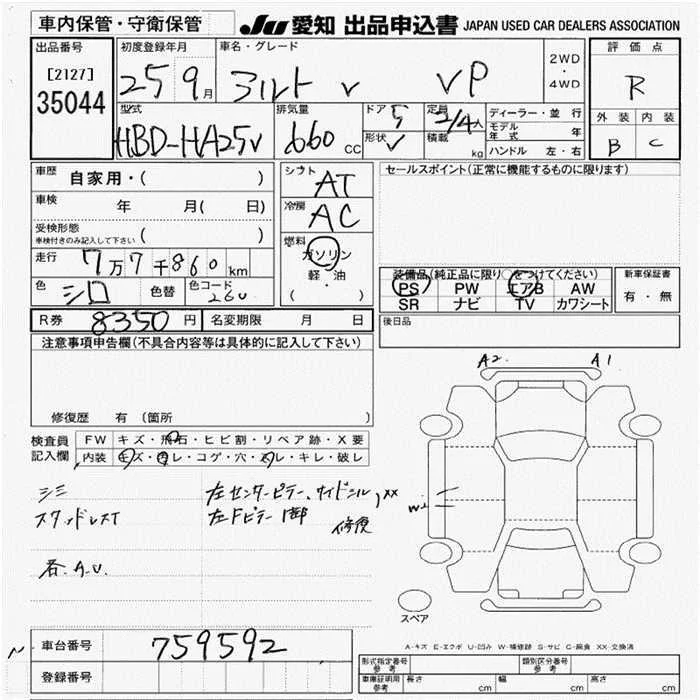 車内保管・守衛保管
JU 愛知 出品申込書 JAPAN USED CAR DEALERS ASSOCIATION
出品番号
[2127]
35044
初度登録年月
25 9月
車名・グレード
アルト V VP
2WD
・
4WD
評価点
R
外装 内装
B C
型式
HBD-HA25V
排気量
660 CC
ドア 5
形状 V
定員 2/4人
積載 kg
ディーラー・並行
モデル年式 年
ハンドル 左・右
車歴 自家用・( )
車検 年 月( 日)
受検形態
車検付きのみ記入して下さい ( )
走行 7万7千860km
色 シロ 色替 色コード 26U
R券 8350円 名変期限 月 日
シフト AT
冷房 AC
燃料
ガソリン
軽・油
( )
セールスポイント(正常に機能するものに限ります)
装備品(純正品に限り○をつけてください)
PS PW エアB AW
SR ナビ TV カワシート
新車保証書
有・無
後日品
注意事項申告欄(不具合内容等は具体的に記入して下さい)
修復歴 有 (箇所 )
検査員記入欄
FW キズ・飛石・ヒビ割・リペア跡・X要
内装 キズ・汚レ・コゲ・穴・スレ・キレ・破レ
シミ
スタッドレスT
各.A.U.
左センターピラー,サイドシル,XX
左Fピラー 1部 修復
A2 A1
W2
スペア
A-キズ E-エクボ U-凹み W-補修跡 S-サビ C-腐食 XX-交換済
車台番号 759592
登録番号
型式指定番号 参考
類別区分番号 参考
車庫証明用 参考
長さ cm 幅 cm 高さ cm